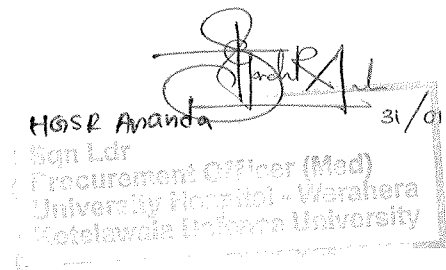 HGSR Ananda
31/01
Sqn Ldr
Procurement Officer (Med)
University Hospital - Werahera
Kotelawala Defence University